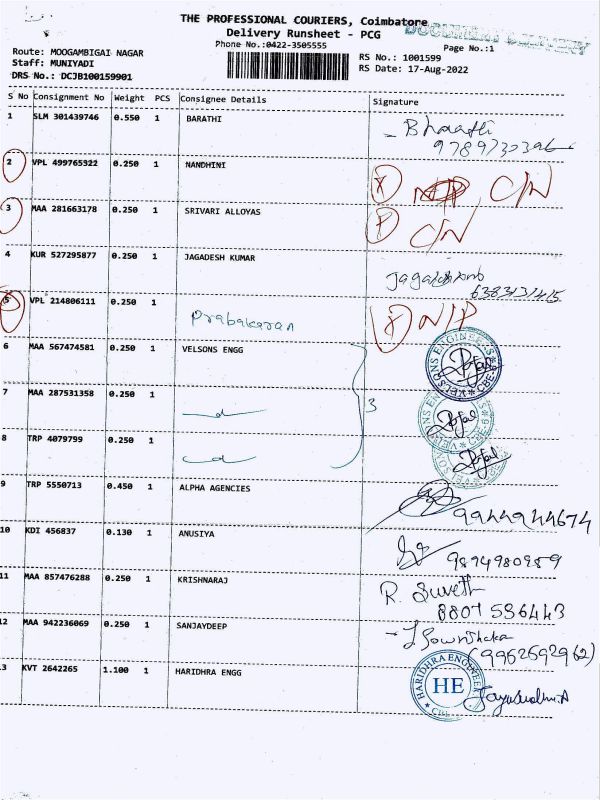 THE PROFESSIONAL COURIERS, Coimbatore
DOCUMENT DELIVERY
Delivery Runsheet - PCG
Phone No.:0422-3505555
Page No.:1
Route: MOOGAMBIGAI NAGAR
RS No.: 1001599
Staff: MUNIYADI
RS Date: 17-Aug-2022
DRS No.: DCJB100159901
S No Consignment No Weight PCS Consignee Details Signature
1 SLM 301439746 0.550 1 BARATHI Bharathi
2 VPL 499765322 0.250 1 NANDHINI C/N
3 MAA 281663178 0.250 1 SRIVARI ALLOYAS C/N
4 KUR 527295877 0.250 1 JAGADESH KUMAR
6383131415
5 VPL 214806111 0.250 1 Prabakaran N/P
6 MAA 567474581 0.250 1 VELSONS ENGG VELSONS ENGINEERS CBE-6
7 MAA 287531358 0.250 1 3
8 TRP 4079799 0.250 1
9 TRP 5550713 0.450 1 ALPHA AGENCIES 9944944674
10 KDI 456837 0.130 1 ANUSIYA 9894980959
11 MAA 857476288 0.250 1 KRISHNARAJ R. Suveth
8807 536443
12 MAA 942236069 0.250 1 SANJAYDEEP
(9962692962)
13 KVT 2642265 1.100 1 HARIDHRA ENGG HARIDHRA ENGINEER HE CBE